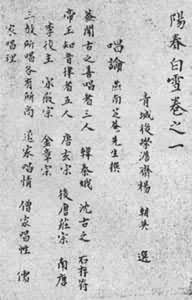 陽春白雪卷之一
青城後學澹齋楊 朝英 選
唱論 燕南芝菴先生撰
竊聞古之善唱者三人 韓秦娥 沈古之 石存符
帝王知音律者五人 唐玄宗 後唐莊宗 南唐
李後主 宋徽宗 金章宗
三教所唱各有所尚 道家唱情 僧家唱性 儒
家唱理